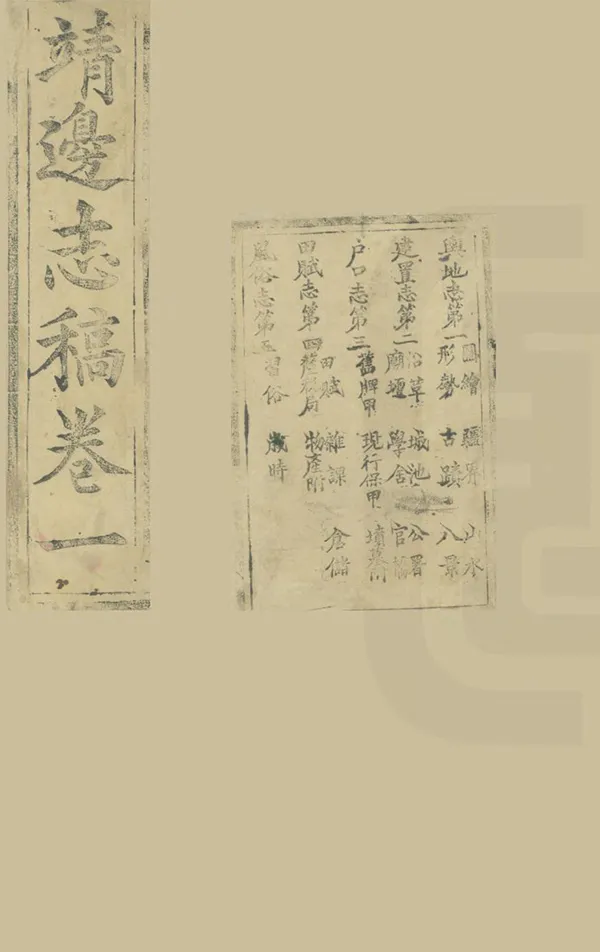 靖邊志稿卷一
輿地志第一 圖繪 疆界 山水
形勢 古蹟 八景
建置志第二 沿革 城池 公署
廟壇 學舍
戶口志第三 舊牌甲 現行保甲 墳墓附
田賦志第四 田賦 雜課 倉儲
釐稅局 物產附
風俗志第五 習俗 歲時